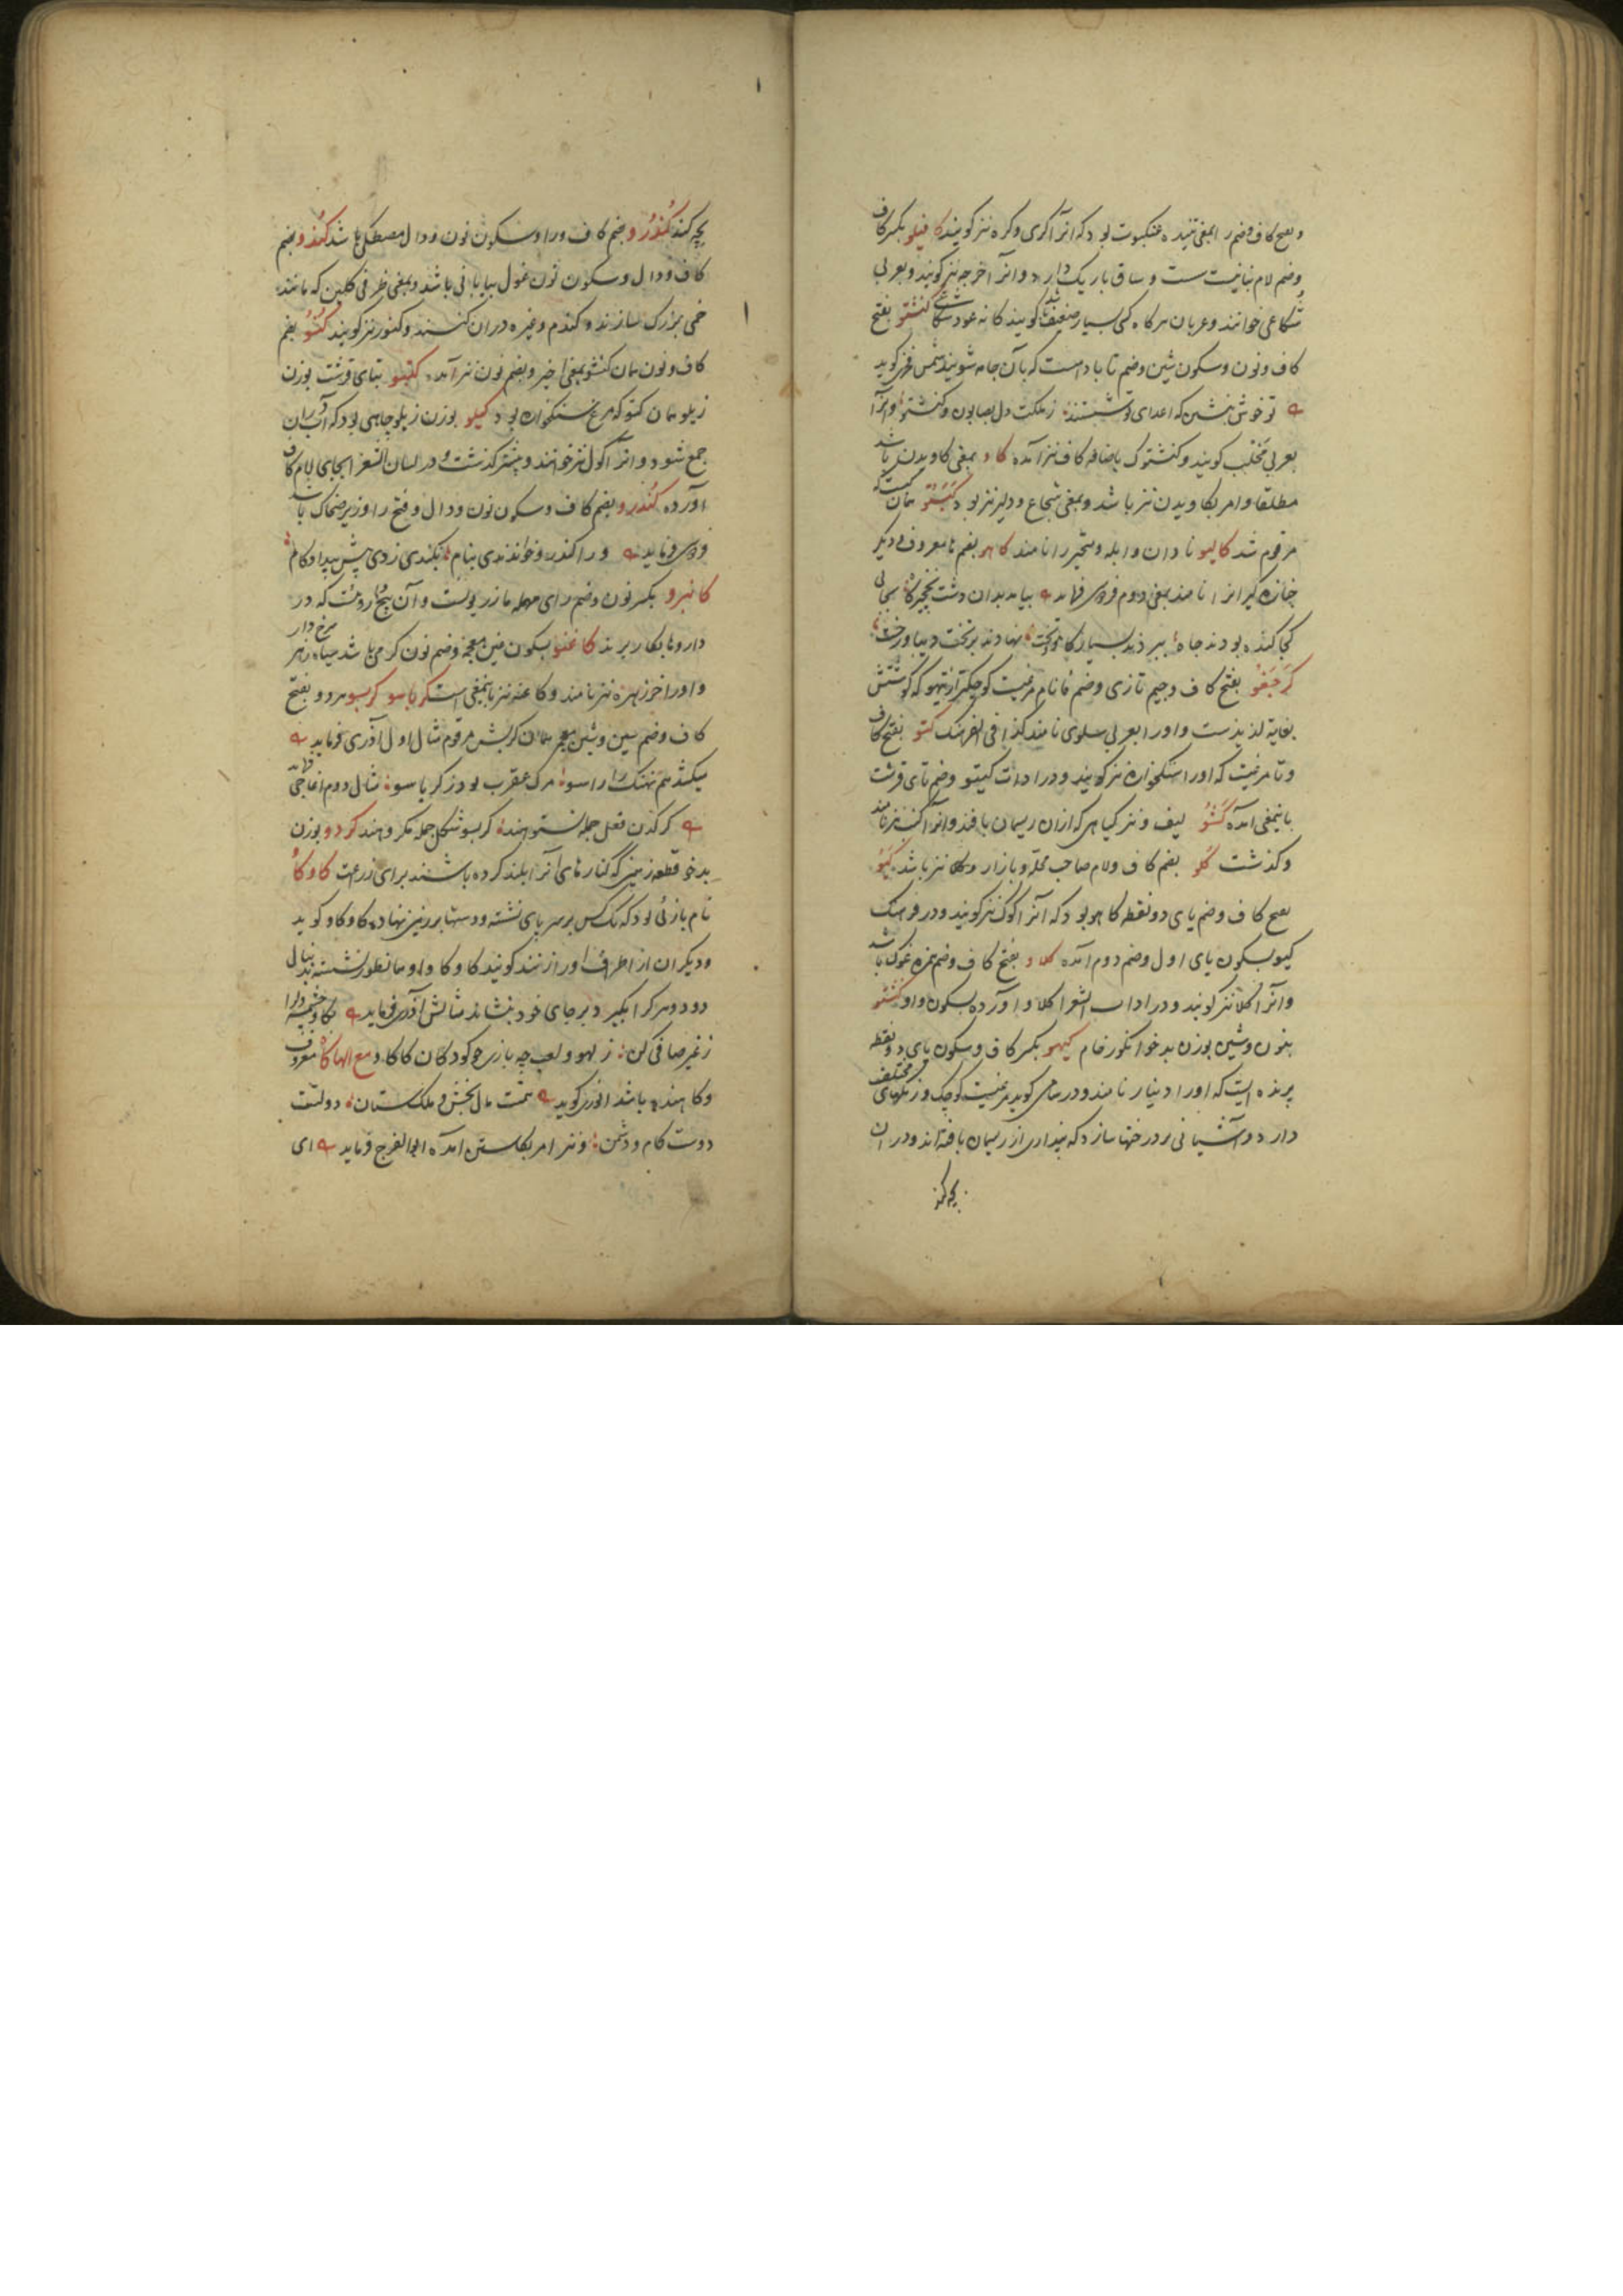 و بفتح کاف و ضم را بمعنی تنیده عنکبوت بود که انرا کری و کره نیز کویند کافیلو بکسر کاف
و ضم لام نباتیست ست و ساق باریک دارد و انرا اخرجه نیز کویند و بعربی
شکاعی خوانند و عربان هرکاه کسی بسیار ضعیف باشد کویند کانه عود شکاعی کنشتو بفتح
کاف و نون و سکون شین و ضم تا با دامست که بآن جامه شویند شمس فخری کوید
تو خوش بنشین که اعدای تو شستند ز ملکت دل بصابون و کنشتو و انرا
بعربی مخلب کویند و کنشتوک باضافه کاف نیز آمده کاو بمعنی کاویدن باشد
مطلقا و امر بکاویدن نیز باشد و بمعنی شجاع و دلیر نیز بود کبستو همان کبست که
مرقوم شد کالیو نادان و ابله و متحیر را نامند کاهو بضم ها معروف دیکر
جنازه کبرانرا نامند بمعنی دوم فردوسی فرماید بیامد بدان دشت نخجیرکاه بجایی
کجا کنده بودند چاه ببردند بسیار کاهو و تخت نهادند بر تخت دیبا و رخت
کرجفو بفتح کاف و جیم تازی و ضم فا نام مرغیست کوچکتر از تیهو که کوشتش
بغایة لذیذست و اورا بعربی سلوی نامند کذا فی الفرهنک کتو بفتح کاف
و تا مرغیست که اورا سنکخواره نیز کویند و در ادات کیتو و ضم تای قرشت
باینمعنی آمده کنتو لیف و نیز کیاهی که ازان ریسمان بافند و انرا کنب نیز نامند
و کذشت کلو بضم کاف و لام صاحب محله و بازار و کلان نیز باشد کیو
بفتح کاف و ضم یای دو نقطه کاهو بود که آنرا کوک نیز کویند و در فرهنک
کیو بسکون یای اول و ضم دوم آمده کلاو بفتح کاف و ضم همزه غوک باشد
و آنرا کلا نیز کویند و در اداب الشعرا کلاو آورده بسکون واو کنشو
بنون و شین بوزن بدخو انکور خام کیهو بکسر کاف و سکون یای دو نقطه
پرنده ایست که اورا دینار نامند و در سامی کوید مرغیست کوچک و رنکهای مختلف
دارد و آشیانی بر درختها سازد که پنداری از ریسمان بافته اند و در ان
بچه کند
بچه کند کندرو بضم کاف و را و سکون نون و دال مصطکی باشد کندو بضم
کاف و دال و سکون نون غول بیابانی باشد و بمعنی ظرفی کلین که مانند
خمی بزرک سازند و کندم و غیره دران کنند و کنور نیز کویند کنو بضم
کاف و نون همان کنشو بمعنی اخیر و بضم نون نیز آمده کتیو بتای قرشت بوزن
زیلو همان کتو که مرغ سنکخواره بود کیلو بوزن زیلو چاهی بود که آب باران دران
جمع شود و انرا کول نیز خوانند و پیشتر کذشت و در لسان الشعرا بجای لام کاف
آورده کندرو بضم کاف و سکون نون و دال و فتح را وزیر ضحاک باشد
فردوسی فرماید ورا کندرو خواندندی بنام بکندی زدی پیش بیداد کام
کانیرو بکسر نون و ضم رای مهمله مازریونست و آن بیخ رومیست که در
داروها بکار برند کاغنو بسکون غین معجمه و ضم نون کرمی باشد سیاه زهر سرخ دار
و اورا خرزهره نیز نامند و کاغنه نیز باینمعنی است کرباسو کربسو هر دو بفتح
کاف و ضم سین و شین معجمه همان کربش مرقوم مثال اول آذری فرماید
میکشد هم نهنک را راسو مرک عقرب بود ز کرباسو مثال دوم اغاجی فرماید
کرکدن فعل جمله نستوهند کربسو شکل جمله مکروهند کردو بوزن
بدخو قطعه زمینی که کنارهای آنرا بلند کرده باشند برای زراعت کاوکاو
نام بازئی بود که یک کس بر سر پای نشسته و دستها بر زمین نهاده کاوکاو کوید
و دیکران از اطراف اورا زنند کویند کاوکاو او همانطور نشسته بدنبال
دود و هر که را بکیرد بر جای خود بنشاند مثالش آذری فرماید
ز غیر صافی کن ز لهو و لعب چه بازی چو کودکان کاکاو مع الها کاه معروف
و کاهنده باشد انوری کوید تهمت مال بخش و ملک ستان دولتت
دوست کام و دشمن کاه و نیز امر بکاستن امده ابوالفرج فرماید ای